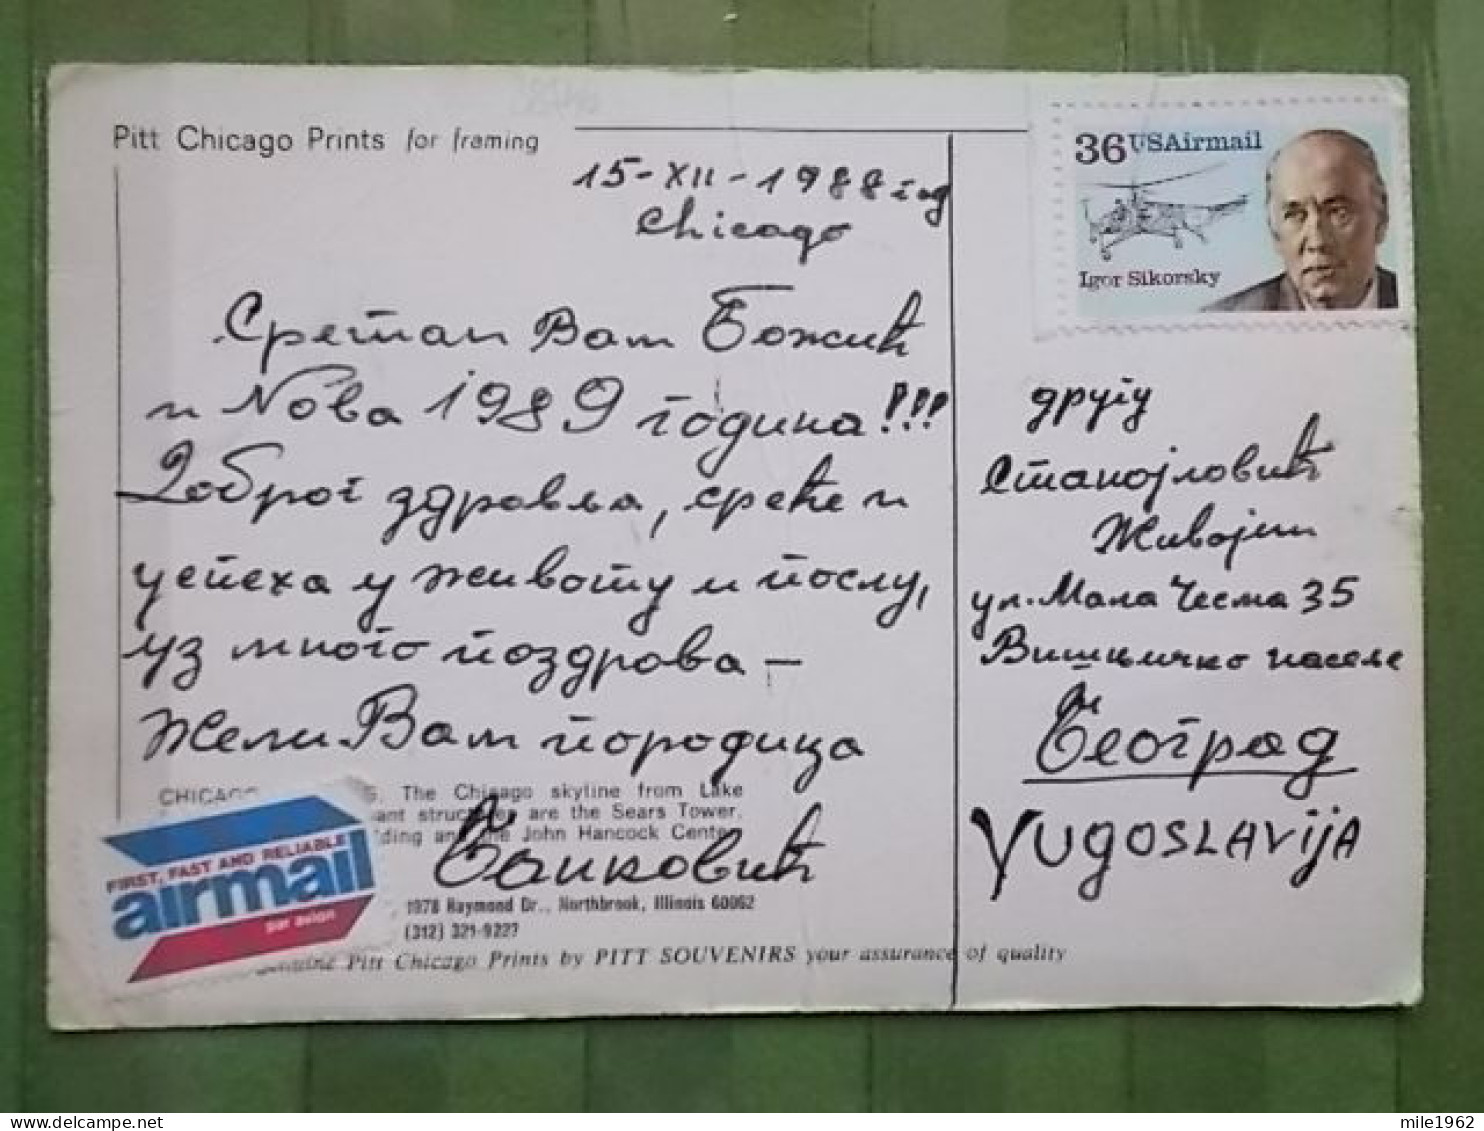 Pitt Chicago Prints for framing
15-XII-1988 год
Chicago
Сретан Вам Божић
и Nова 1989 година!!!
Доброг здравља, среће и
успеха у животу и послу,
уз много поздрава –
Жели Вам породица
Банковић
36 USAirmail
Igor Sikorsky
другу
Станојловић
Живојин
ул. Мала Чесма 35
Вишњичко населе
Београд
YUGOSLAVIJA
CHICAGO The Chicago skyline from Lake
are the Sears Tower,
the John Hancock Center
FIRST, FAST AND RELIABLE
airmail
par avion
1978 Raymond Dr., Northbrook, Illinois 60062
(312) 321-9227
Genuine Pitt Chicago Prints by PITT SOUVENIRS your assurance of quality
mile1962